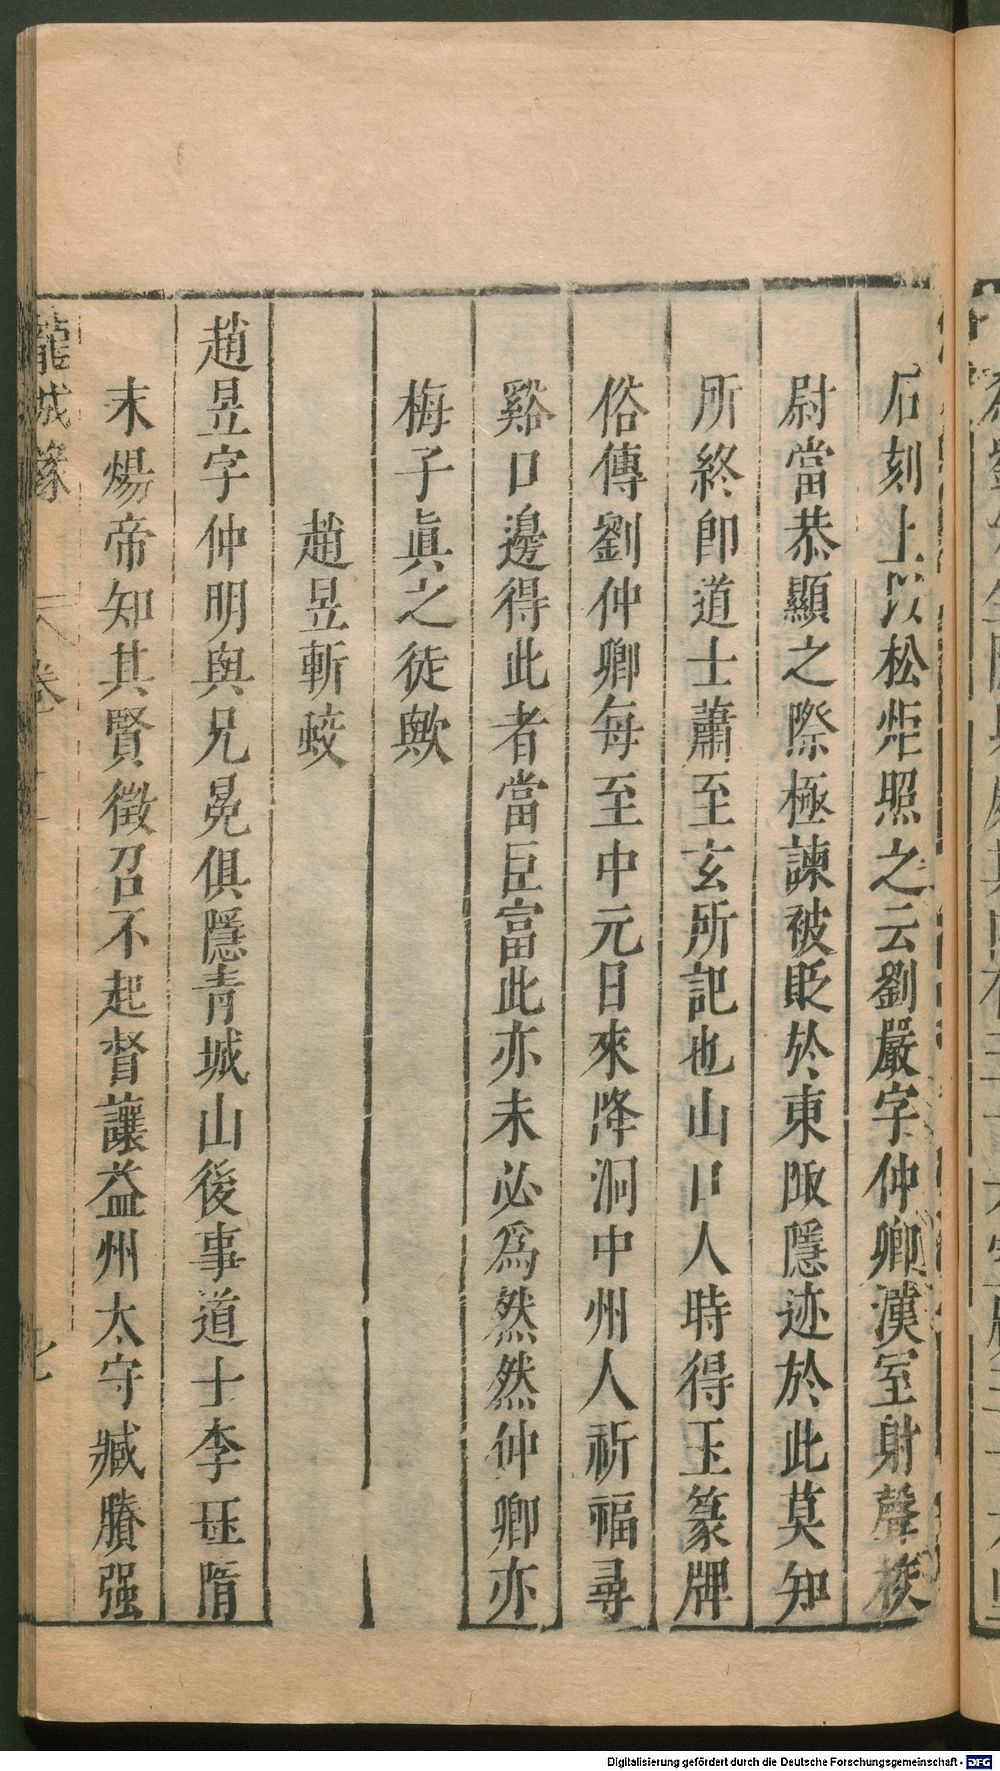 石刻上以松炬照之云劉嚴字仲卿漢室射聲校
尉當恭顯之際極諫被貶於東陬隱迹於此莫知
所終即道士蕭至玄所記也山口人時得玉篆牌
俗傳劉仲卿每至中元日來降洞中州人祈福尋
谿口邊得此者當巨富此亦未必爲然然仲卿亦
梅子眞之徒歟
趙昱斬蛟
趙昱字仲明與兄冕俱隱青城山後事道士李珏隋
末煬帝知其賢徵召不起督讓益州太守臧賸强
龍城錄 卷 七
Digitalisierung gefördert durch die Deutsche Forschungsgemeinschaft - DFG